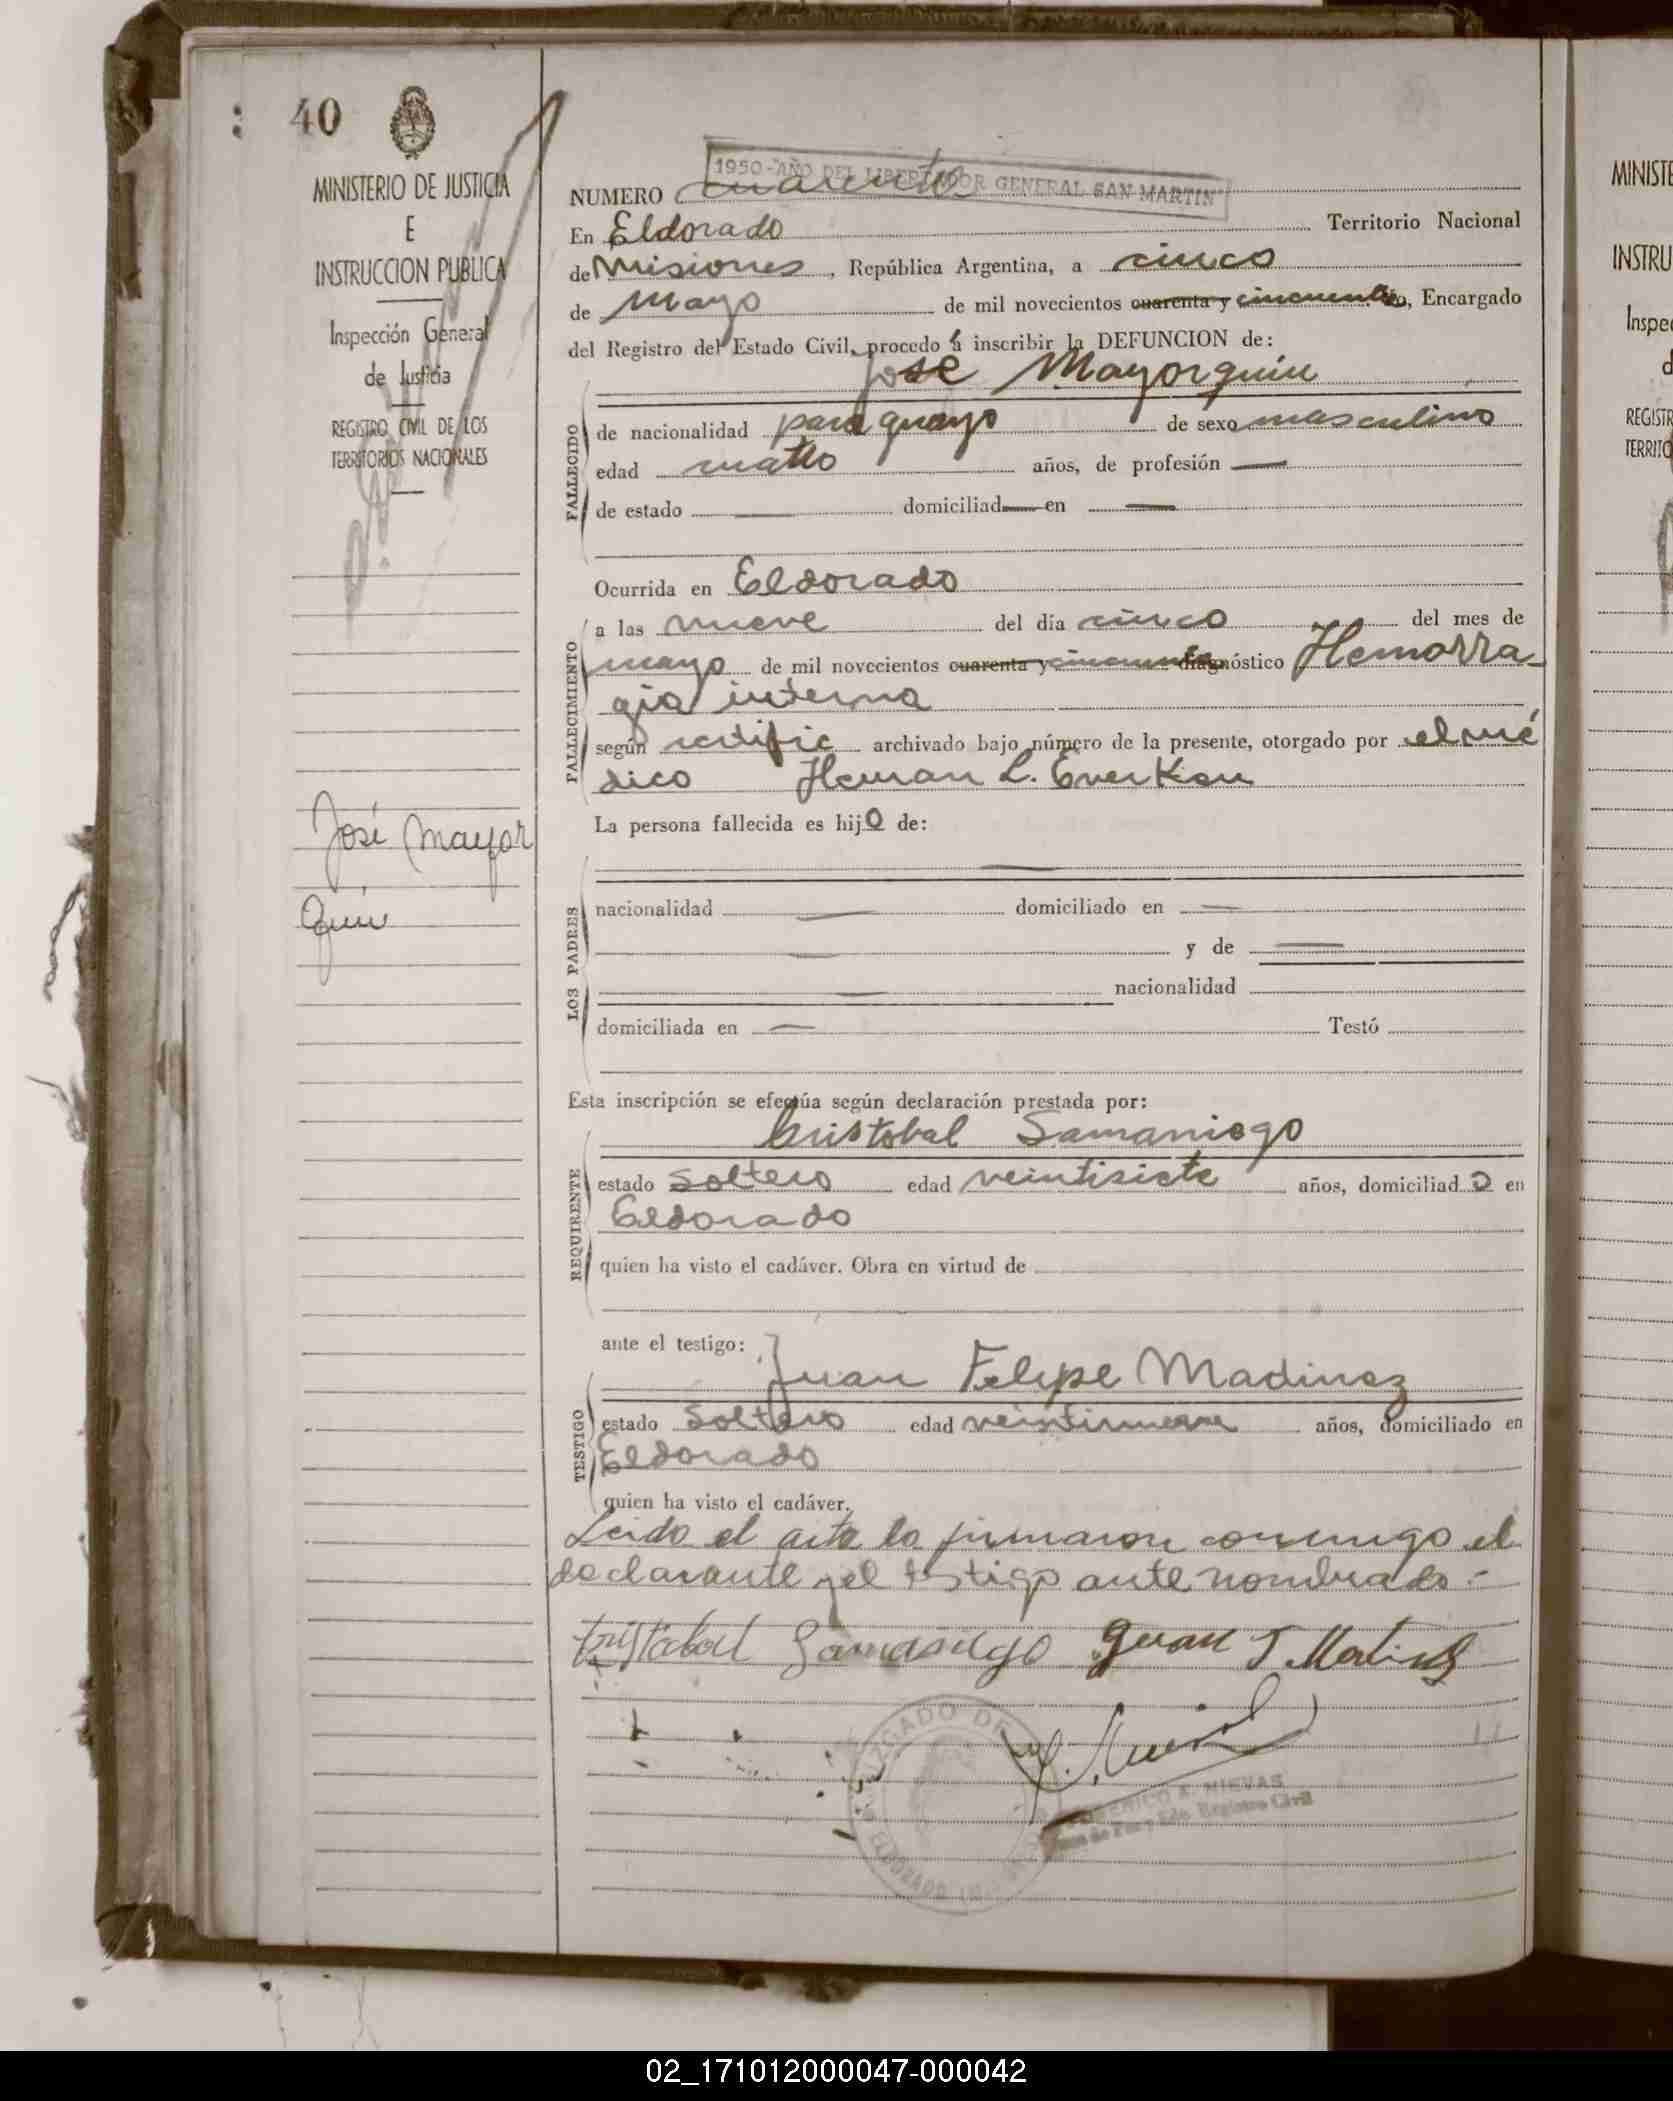 40
MINISTERIO DE JUSTICIA
E
INSTRUCCION PUBLICA
Inspección General
de Justicia
REGISTRO CIVIL DE LOS
TERRITORIOS NACIONALES
José Mayor
Quin
1950-AÑO DEL LIBERTADOR GENERAL SAN MARTIN
NUMERO cuarenta
En Eldorado Territorio Nacional
de Misiones, República Argentina, a cinco
de Mayo de mil novecientos cuarenta y cincuenta, Encargado
del Registro del Estado Civil, procedo á inscribir la DEFUNCION de:
José Mayorquin
FALLECIDO
de nacionalidad paraguayo de sexo masculino
edad cuatro años, de profesión —
de estado — domiciliad— en —
Ocurrida en Eldorado
FALLECIMIENTO
a las nueve del día cinco del mes de
mayo de mil novecientos cuarenta y cincuenta diagnóstico Hemorra-
gia interna
según certific archivado bajo número de la presente, otorgado por el mé
dico Herman L.
La persona fallecida es hijo de:
LOS PADRES
nacionalidad — domiciliado en —
— y de —
— nacionalidad
domiciliada en — Testó
Esta inscripción se efectúa según declaración prestada por:
Cristobal Samaniego
REQUIRENTE
estado soltero edad veintisiete años, domiciliado en
Eldorado
quien ha visto el cadáver. Obra en virtud de
ante el testigo:
Juan Felipe Madinez
TESTIGO
estado soltero edad veintinueve años, domiciliado en
Eldorado
quien ha visto el cadáver.
Leido el acta la firmaron conmigo el
declarante y el testigo ante nombrado.-
Cristobal Samaniego Juan
JUZGADO DE
ELDORADO
A. NIEVAS
Registro Civil
MINISTE
INSTRU
Inspe
d
REGISTR
TERRITO
02_171012000047-000042